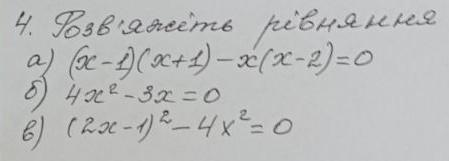 4. Розв'яжіть рівняння
а) (x-1)(x+1)-x(x-2)=0
б) 4x²-3x=0
в) (2x-1)²-4x²=0